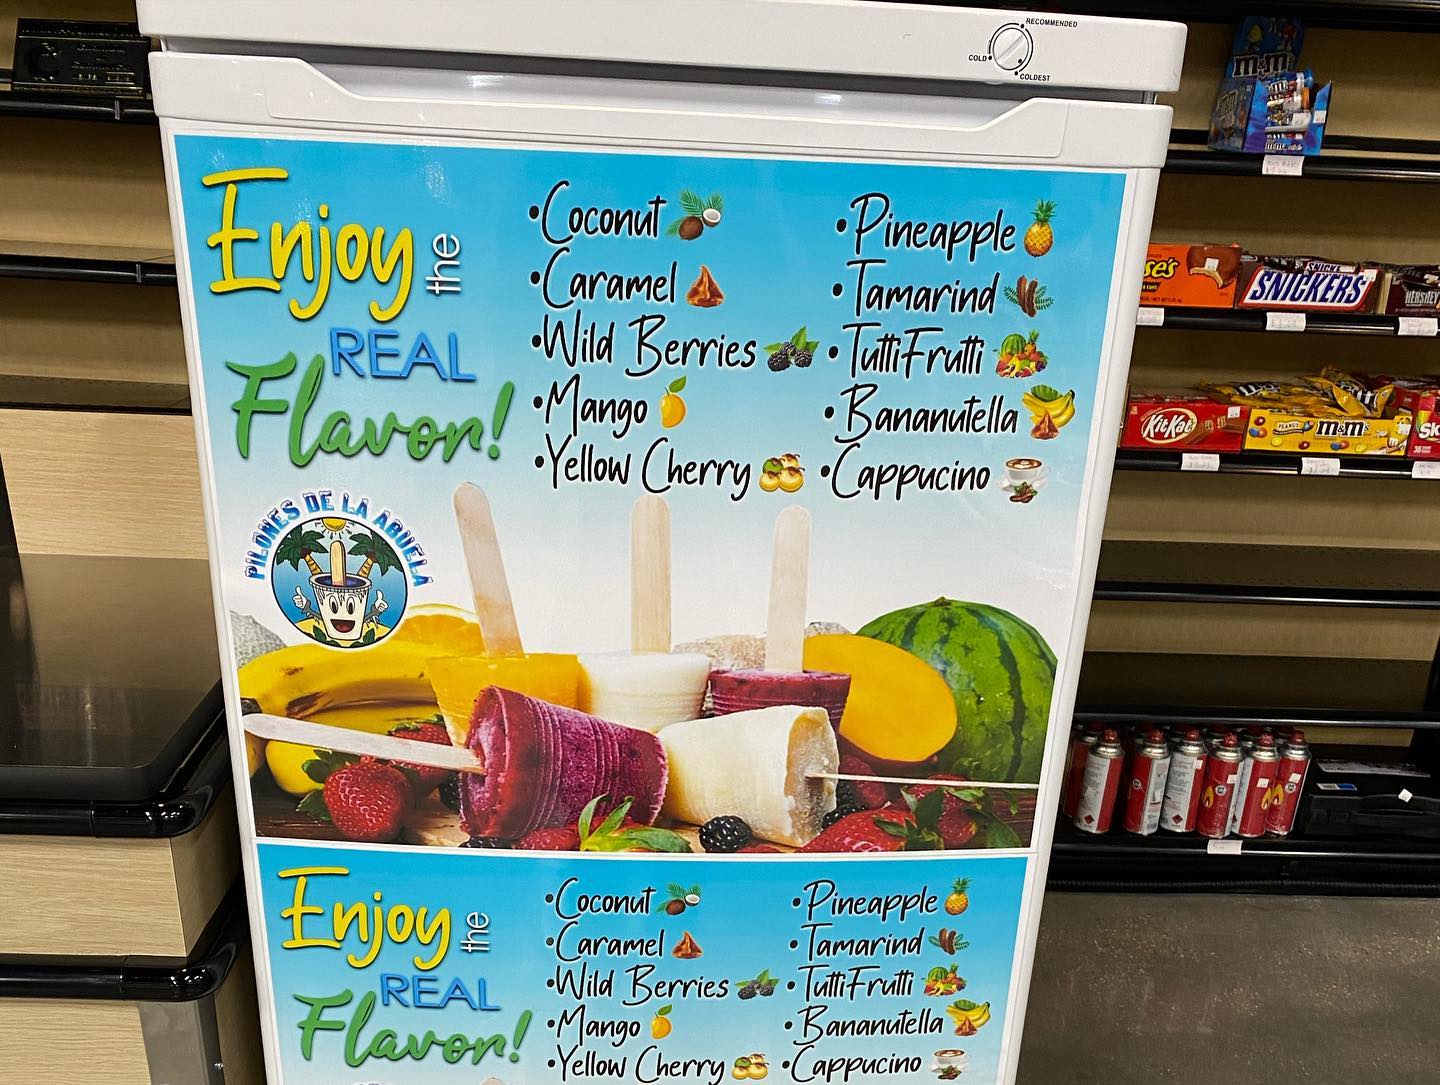 RECOMMENDED
COLD
COLDEST
Enjoy the
REAL
Flavor!
•Coconut
•Caramel
•Wild Berries
•Mango
•Yellow Cherry
•Pineapple
•Tamarind
•TuttiFrutti
•Bananutella
•Cappucino
PILONES DE LA ABUELA
Enjoy the
REAL
Flavor!
•Coconut
•Caramel
•Wild Berries
•Mango
•Yellow Cherry
•Pineapple
•Tamarind
•TuttiFrutti
•Bananutella
•Cappucino
m&m's
SNICKERS
HERSHEY
KitKat
PEANUT
m&m's